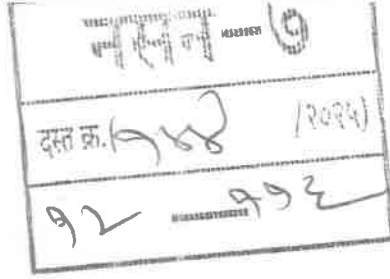 नसन-७
दस्त क्र.(१७४४ /२०२५)
१२ — ११६